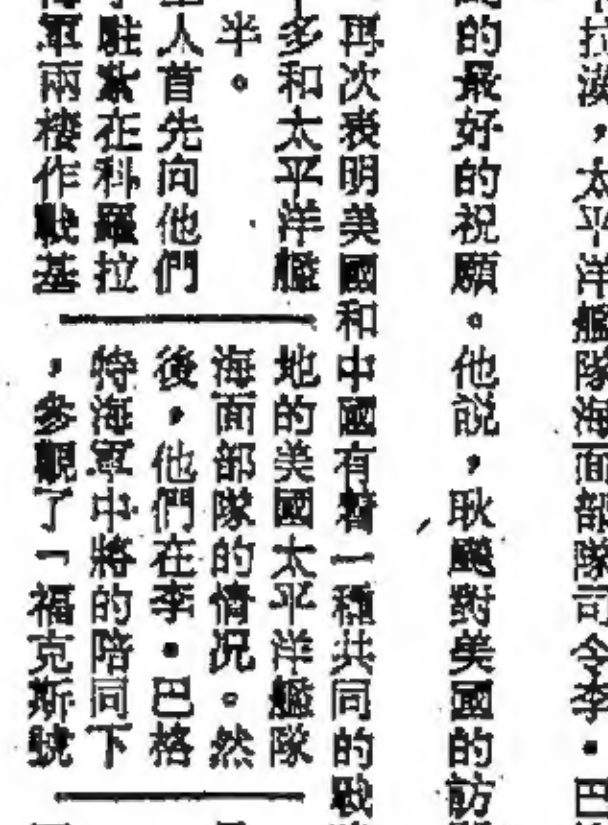 拉漠，太平洋艦隊海面部隊司令李·巴
的最好的祝願。他説，耿飈對美國的訪
再次表明美國和中國有着一種共同的戰
多和太平洋艦
半。
人首先向他們
駐紮在科羅拉
軍兩棲作戰基
地的美國太平洋艦隊
海面部隊的情况。然
後，他們在李·巴格
特海軍中將的陪同下
，參觀了「福克斯號